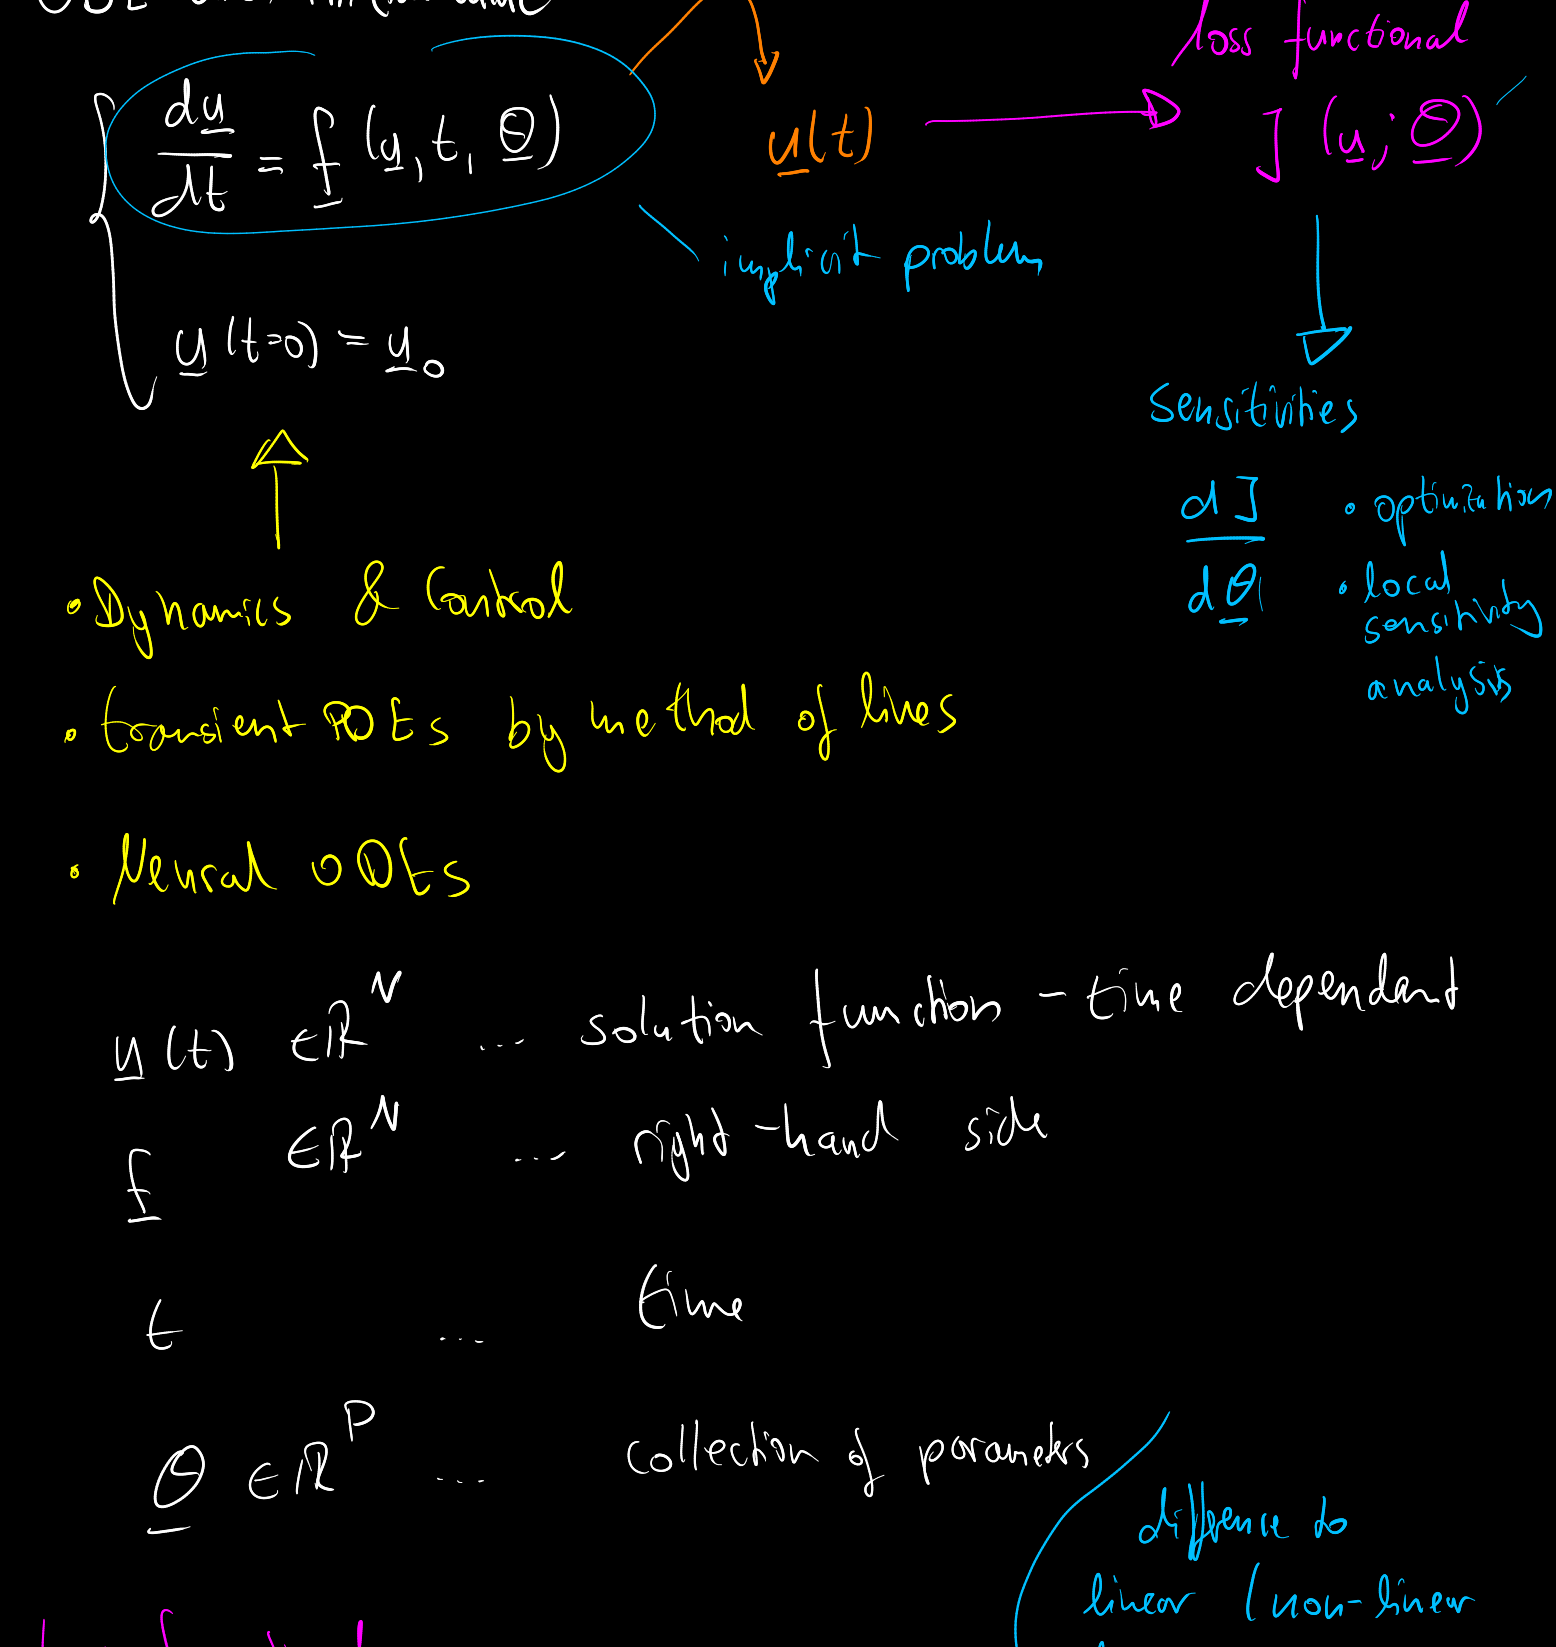 ODE
loss functional
du/dt = f(u, t, θ)
u(t)
J(u; θ)
implicit problem
u(t=0) = u₀
sensitivities
dJ/dθ
• optimization
• local
sensitivity
analysis
• Dynamics & Control
• transient PDEs by method of lines
• Neural ODEs
u(t) ∈ ℝᴺ ... solution function - time dependant
f ∈ ℝᴺ ... right-hand side
t ... time
θ ∈ ℝᴾ ... collection of parameters
difference to
linear (non-linear